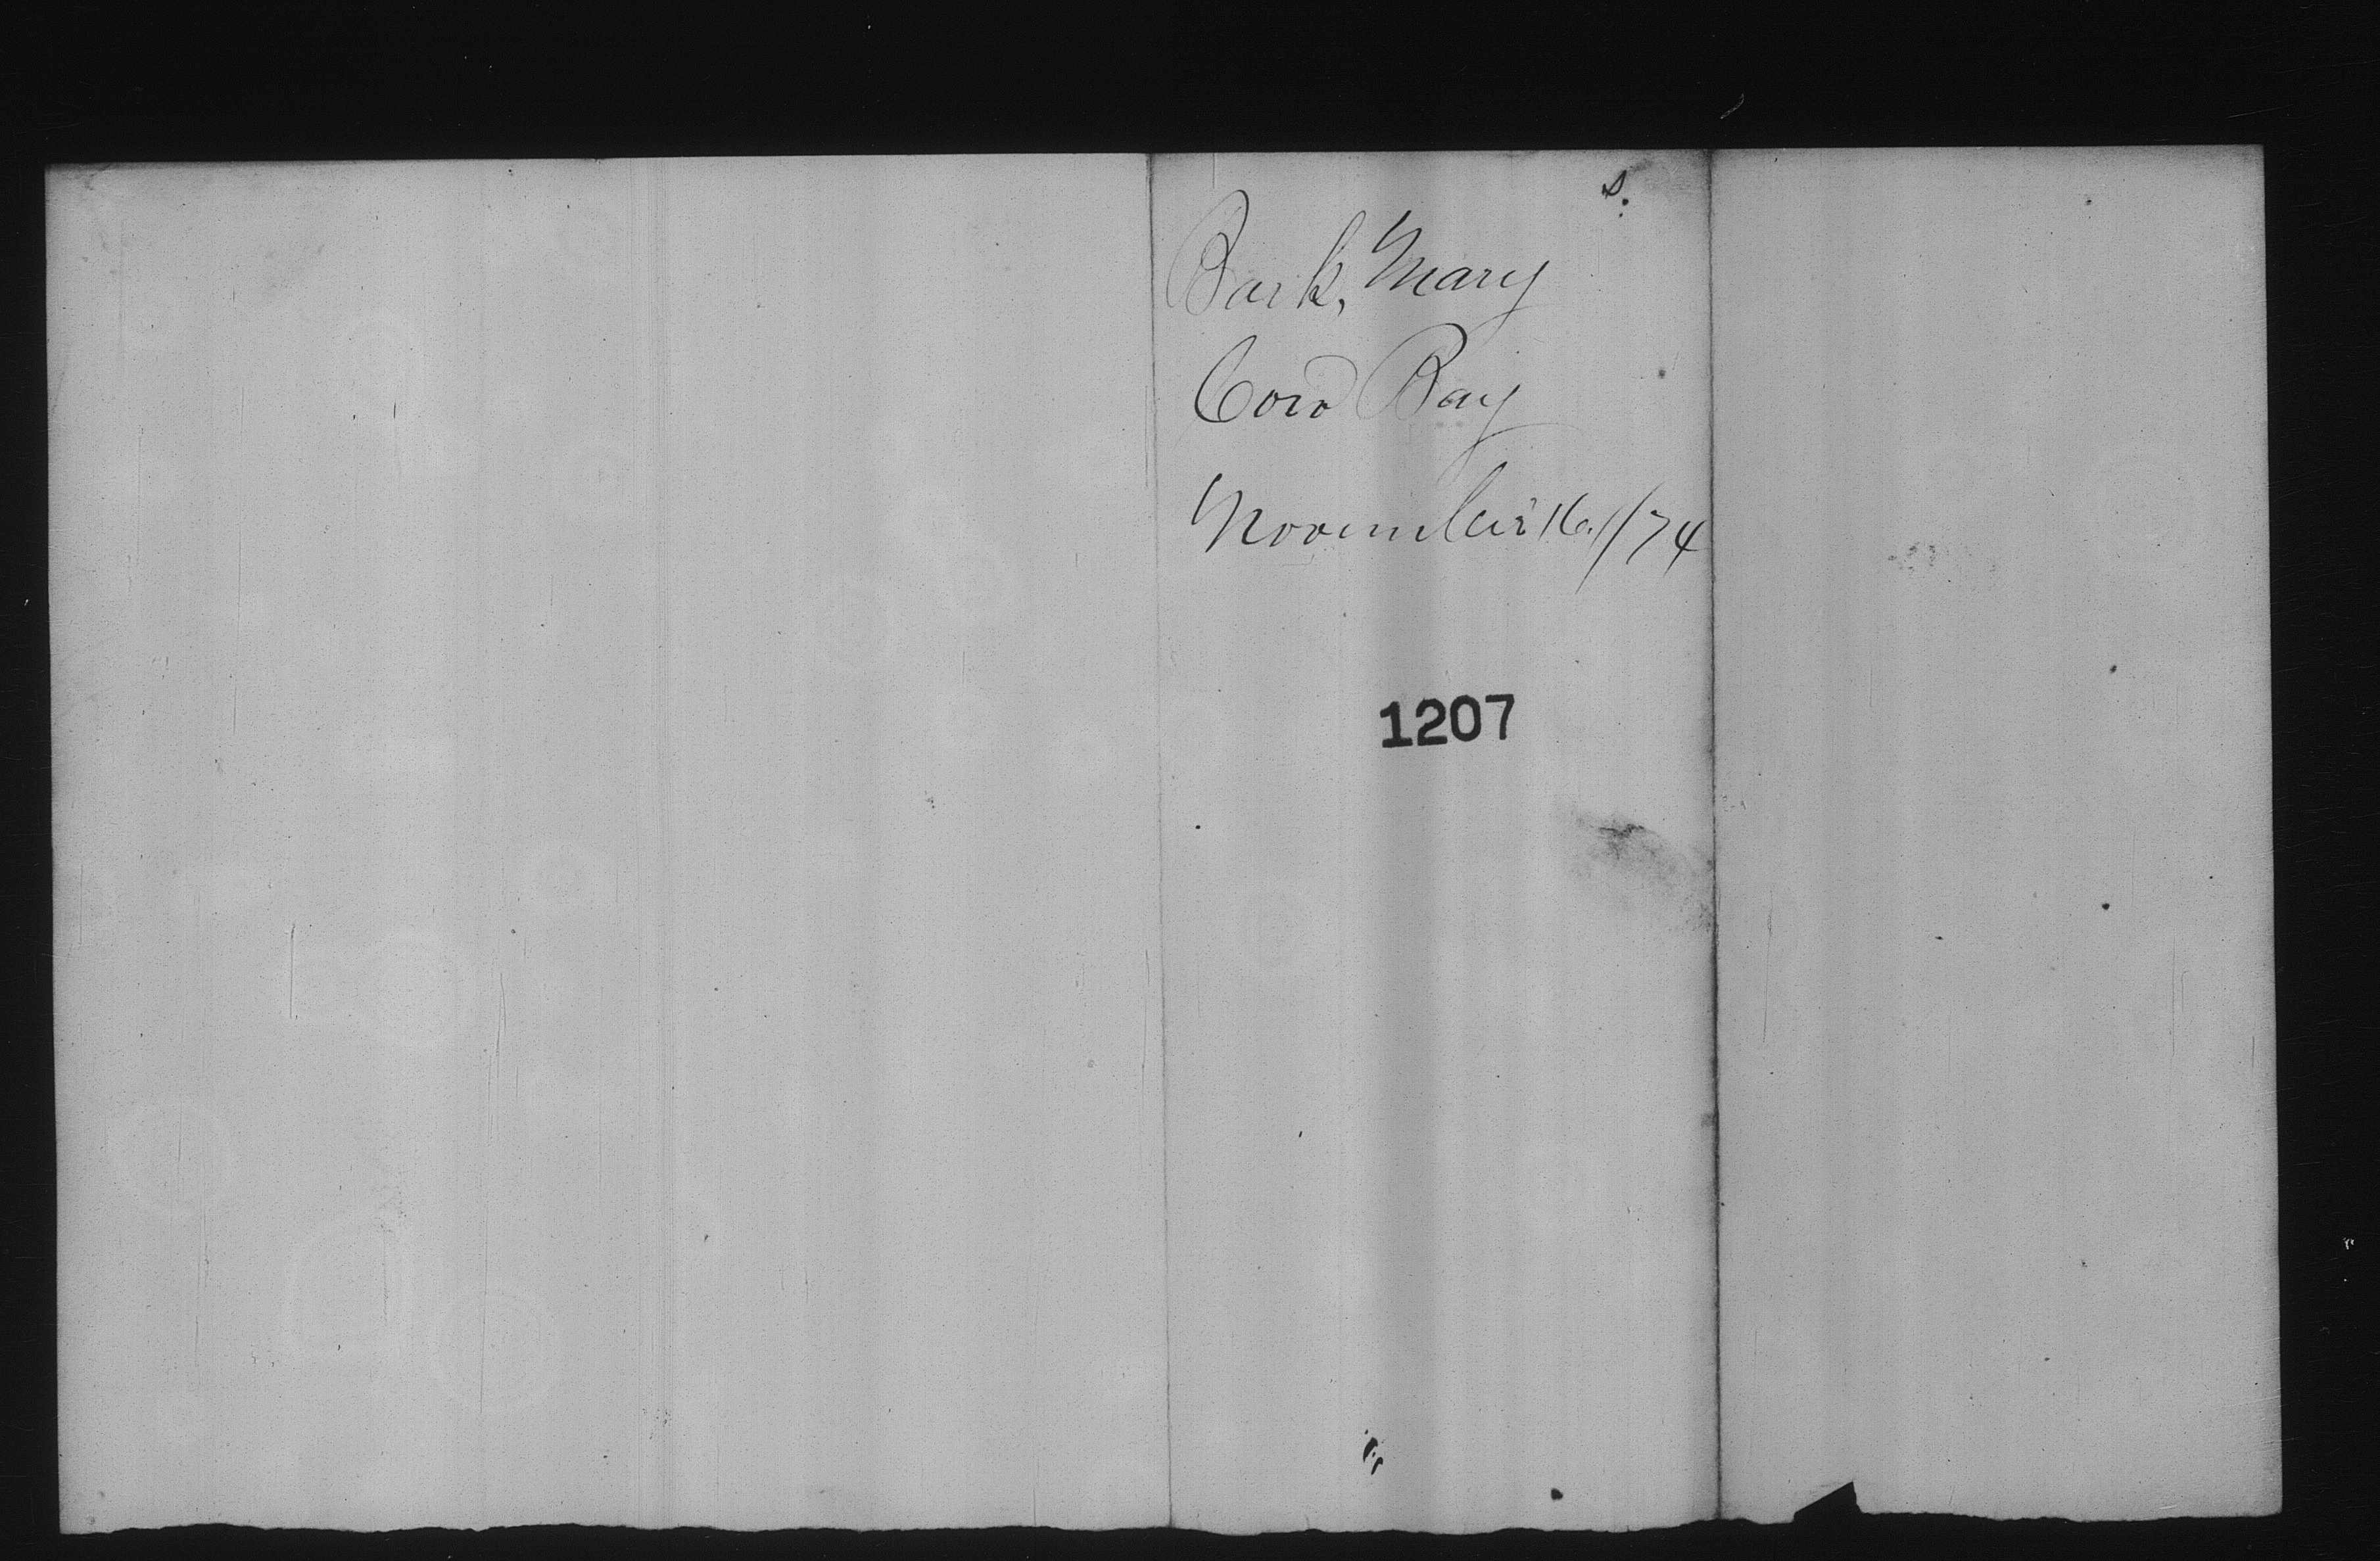 s.
Bark, Mary
Coro Bay
November 16./74
1207